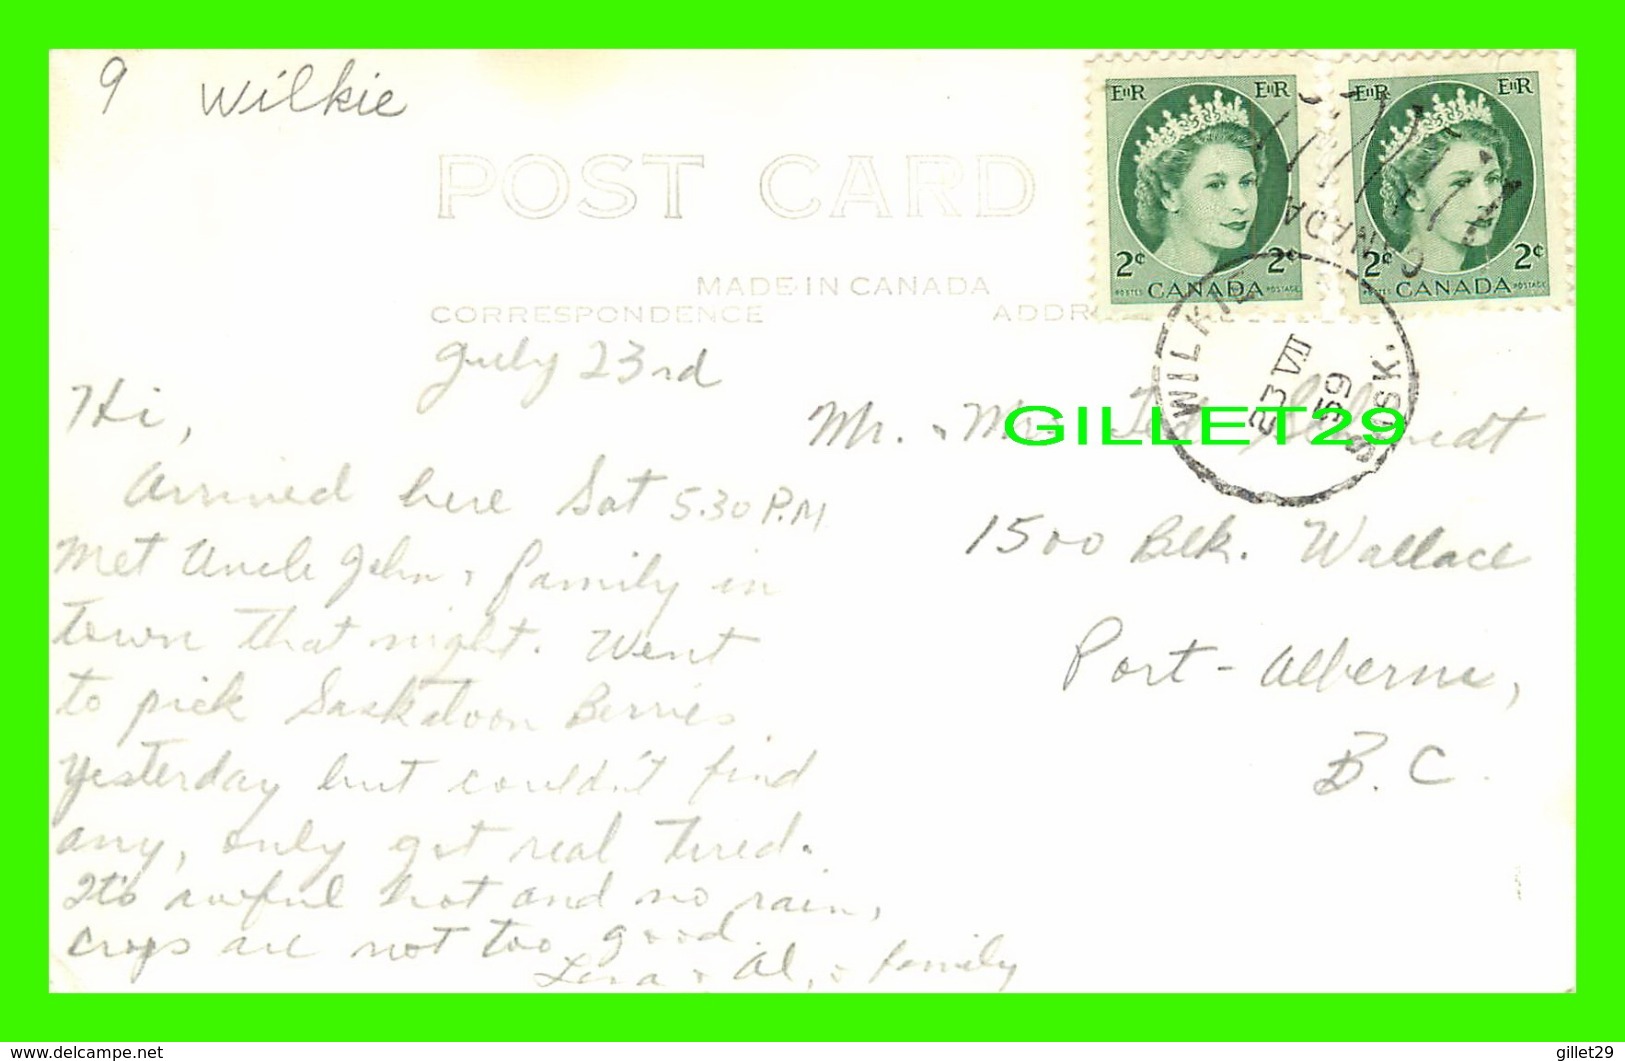 9 Wilkie
POST CARD
MADE IN CANADA
CORRESPONDENCE
ADDR
EIIR EIIR
2¢ 2¢
POSTES CANADA POSTAGE
EIIR EIIR
2¢ 2¢
POSTES CANADA POSTAGE
CANADA
WILKIE
23 VII
59
SASK.
July 23rd
Hi,
Arrived here Sat 5.30 P.M
Met Uncle John & family in
town that night. Went
to pick Saskatoon Berries
yesterday but couldn't find
any, only got real tired.
It's awful hot and no rain,
crops are not too good.
Lena & Al, & family
Mr. & Mrs Ted Schmidt
1500 Blk. Wallace
Port-Alberni,
B.C.
GILLET29
Delcampe.net
gillet29